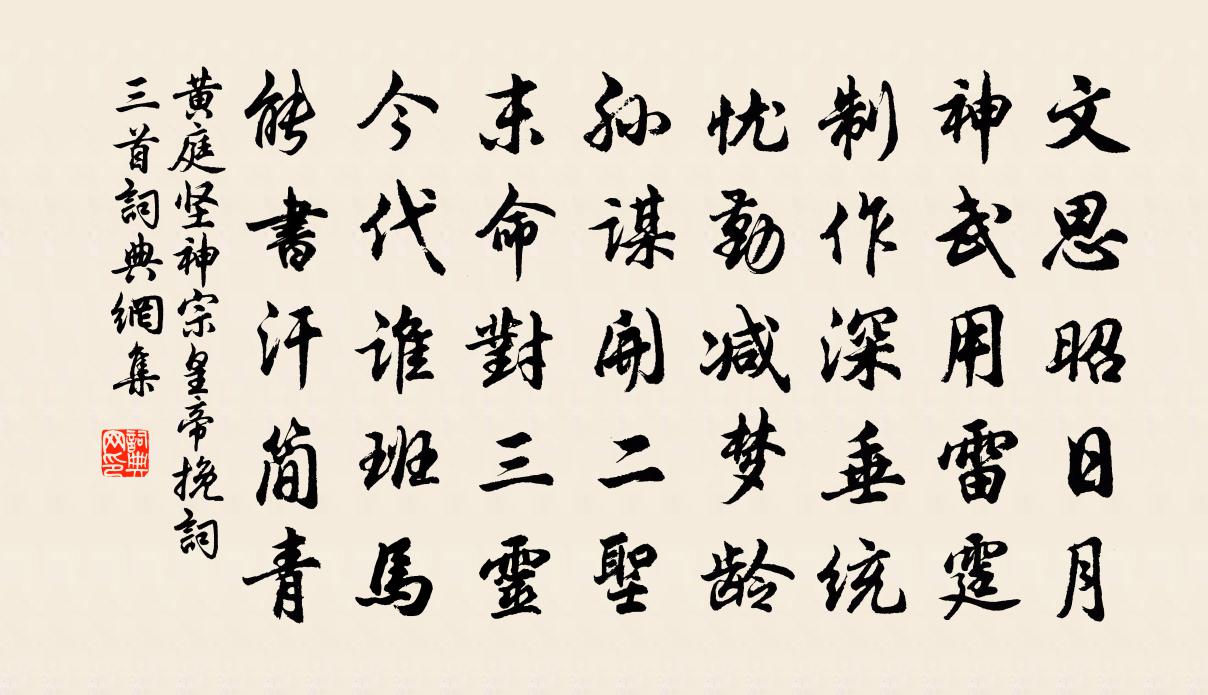 文思昭日月
神武用雷霆
制作深垂统
忧勤减梦龄
孙谋开二聖
末命對三靈
今代谁班馬
能書汗简青
黄庭坚神宗皇帝挽詞
三首詞典網集
詞典
网印